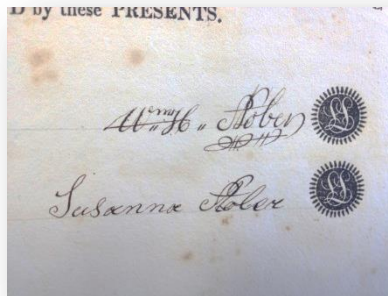 D by these PRESENTS.
Wm. H. Stober
LS
Susanna Stober
LS